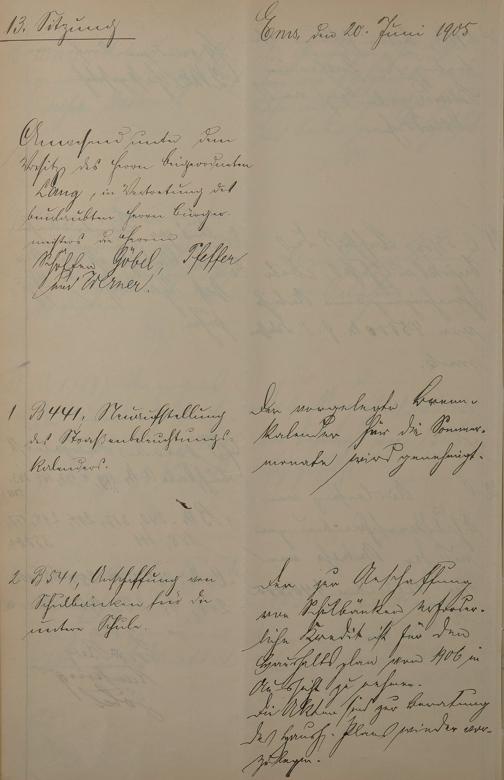 13. Sitzung
Ems, den 20. Juni 1905
Anwesend unter dem
Vorsitz des Herrn Beigeordneten
Lang, in Vertretung des
beurlaubten Herrn Bürger-
meisters die Herrn
Schöffen Göbel, Pfeffer
und Werner.
1 B441, Neuaufstellung
des Straßenbeleuchtungs-
kalenders.
Der vorgelegte Brenn-
kalender für die Sommer-
monate wird genehmigt.
2 B541, Anschaffung von
Schulbänken für die
untere Schule.
Der zur Anschaffung
von Schulbänken erforder-
liche Kredit ist für den
Haushaltsplan von 1906 in
Aussicht zu nehmen.
Die Akten sind zur Beratung
des Haush. Plans wieder vor-
zulegen.